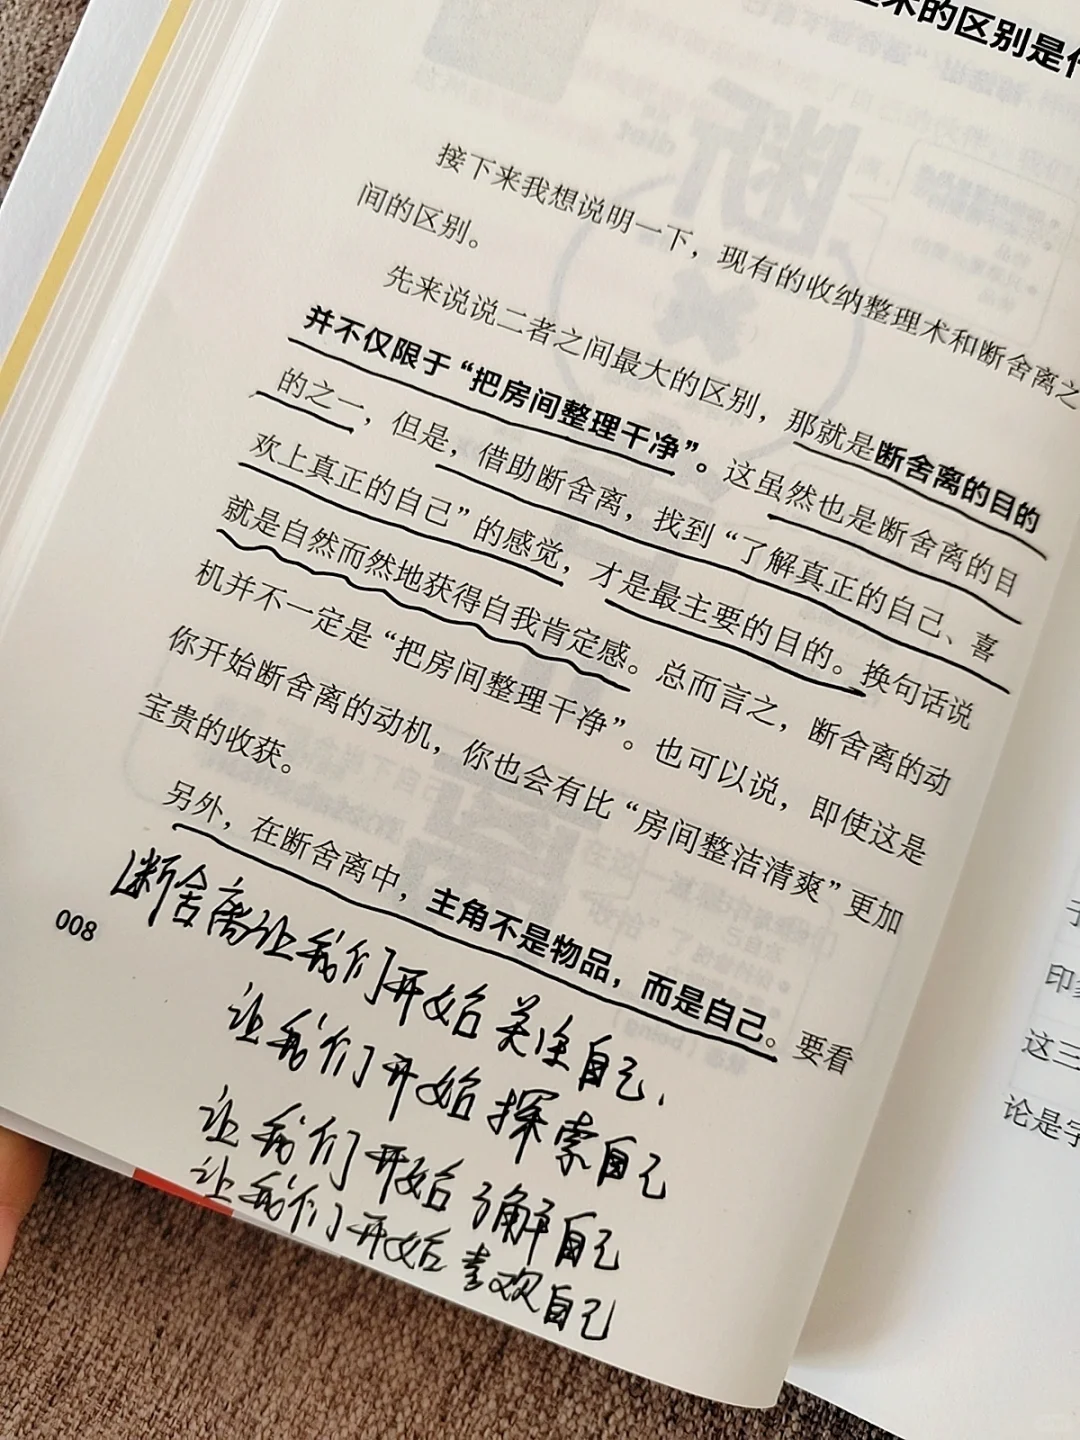 术的区别是什
接下来我想说明一下，现有的收纳整理术和断舍离之
间的区别。
先来说说二者之间最大的区别，那就是断舍离的目的
并不仅限于“把房间整理干净”。这虽然也是断舍离的目
的之一，但是，借助断舍离，找到“了解真正的自己、喜
欢上真正的自己”的感觉，才是最主要的目的。换句话说
就是自然而然地获得自我肯定感。总而言之，断舍离的动
机并不一定是“把房间整理干净”。也可以说，即使这是
你开始断舍离的动机，你也会有比“房间整洁清爽”更加
宝贵的收获。
另外，在断舍离中，主角不是物品，而是自己。要看
断舍离让我们开始关注自己，
让我们开始探索自己
让我们开始了解自己
让我们开始喜欢自己
008
印
这三
论是